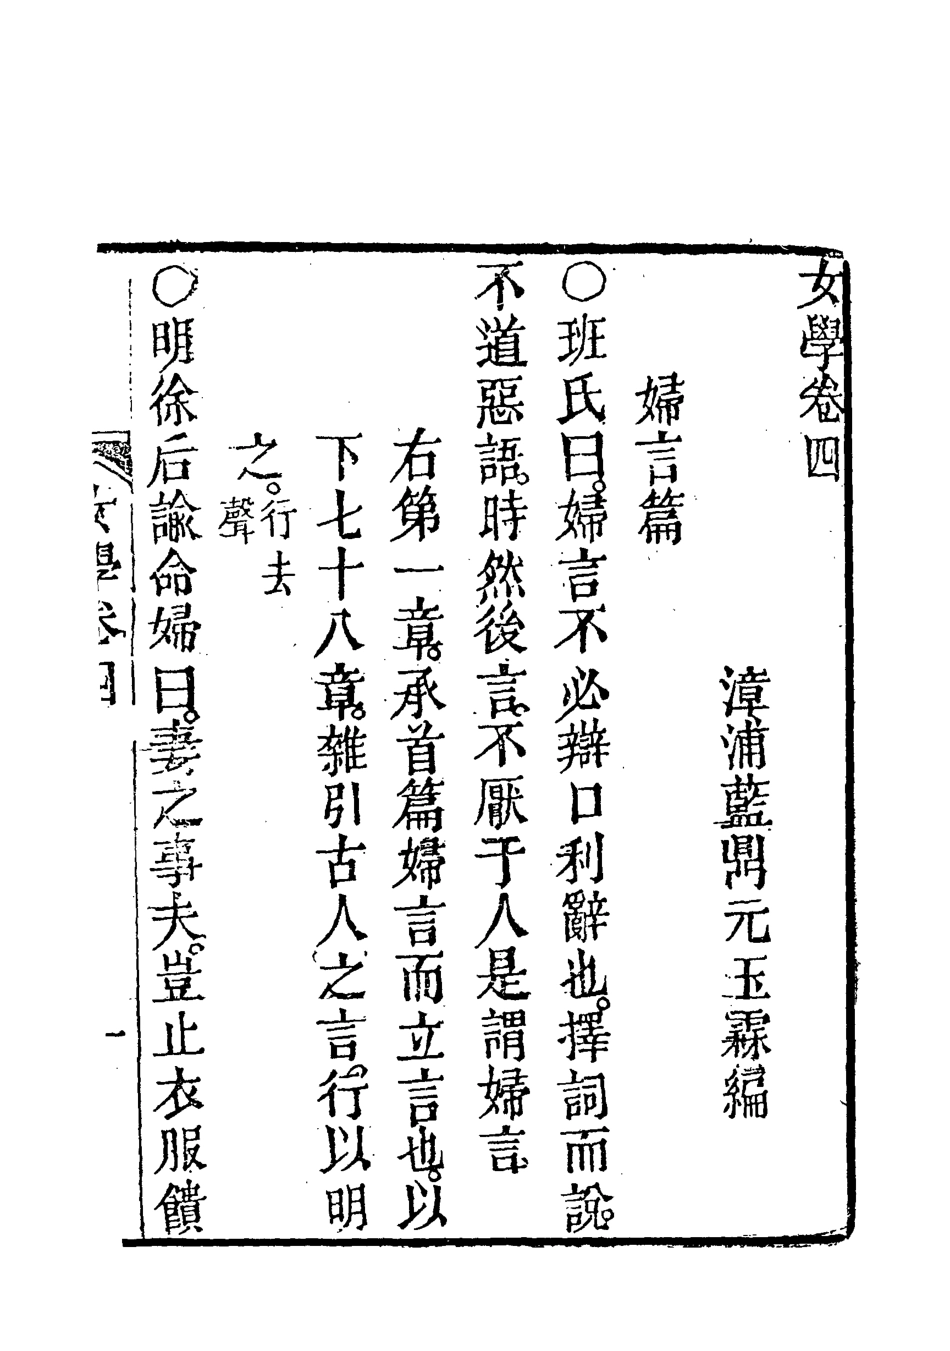 女學卷四
漳浦藍鼎元玉霖編
婦言篇
○班氏曰。婦言不必辯口利辭也。擇詞而說。
不道惡語。時然後言。不厭于人是謂婦言
右第一章。承首篇婦言而立言也。以
下七十八章。雜引古人之言。行以明
之。行去聲
○明徐后諭命婦曰。妻之事夫。豈止衣服饋
女學卷四
一